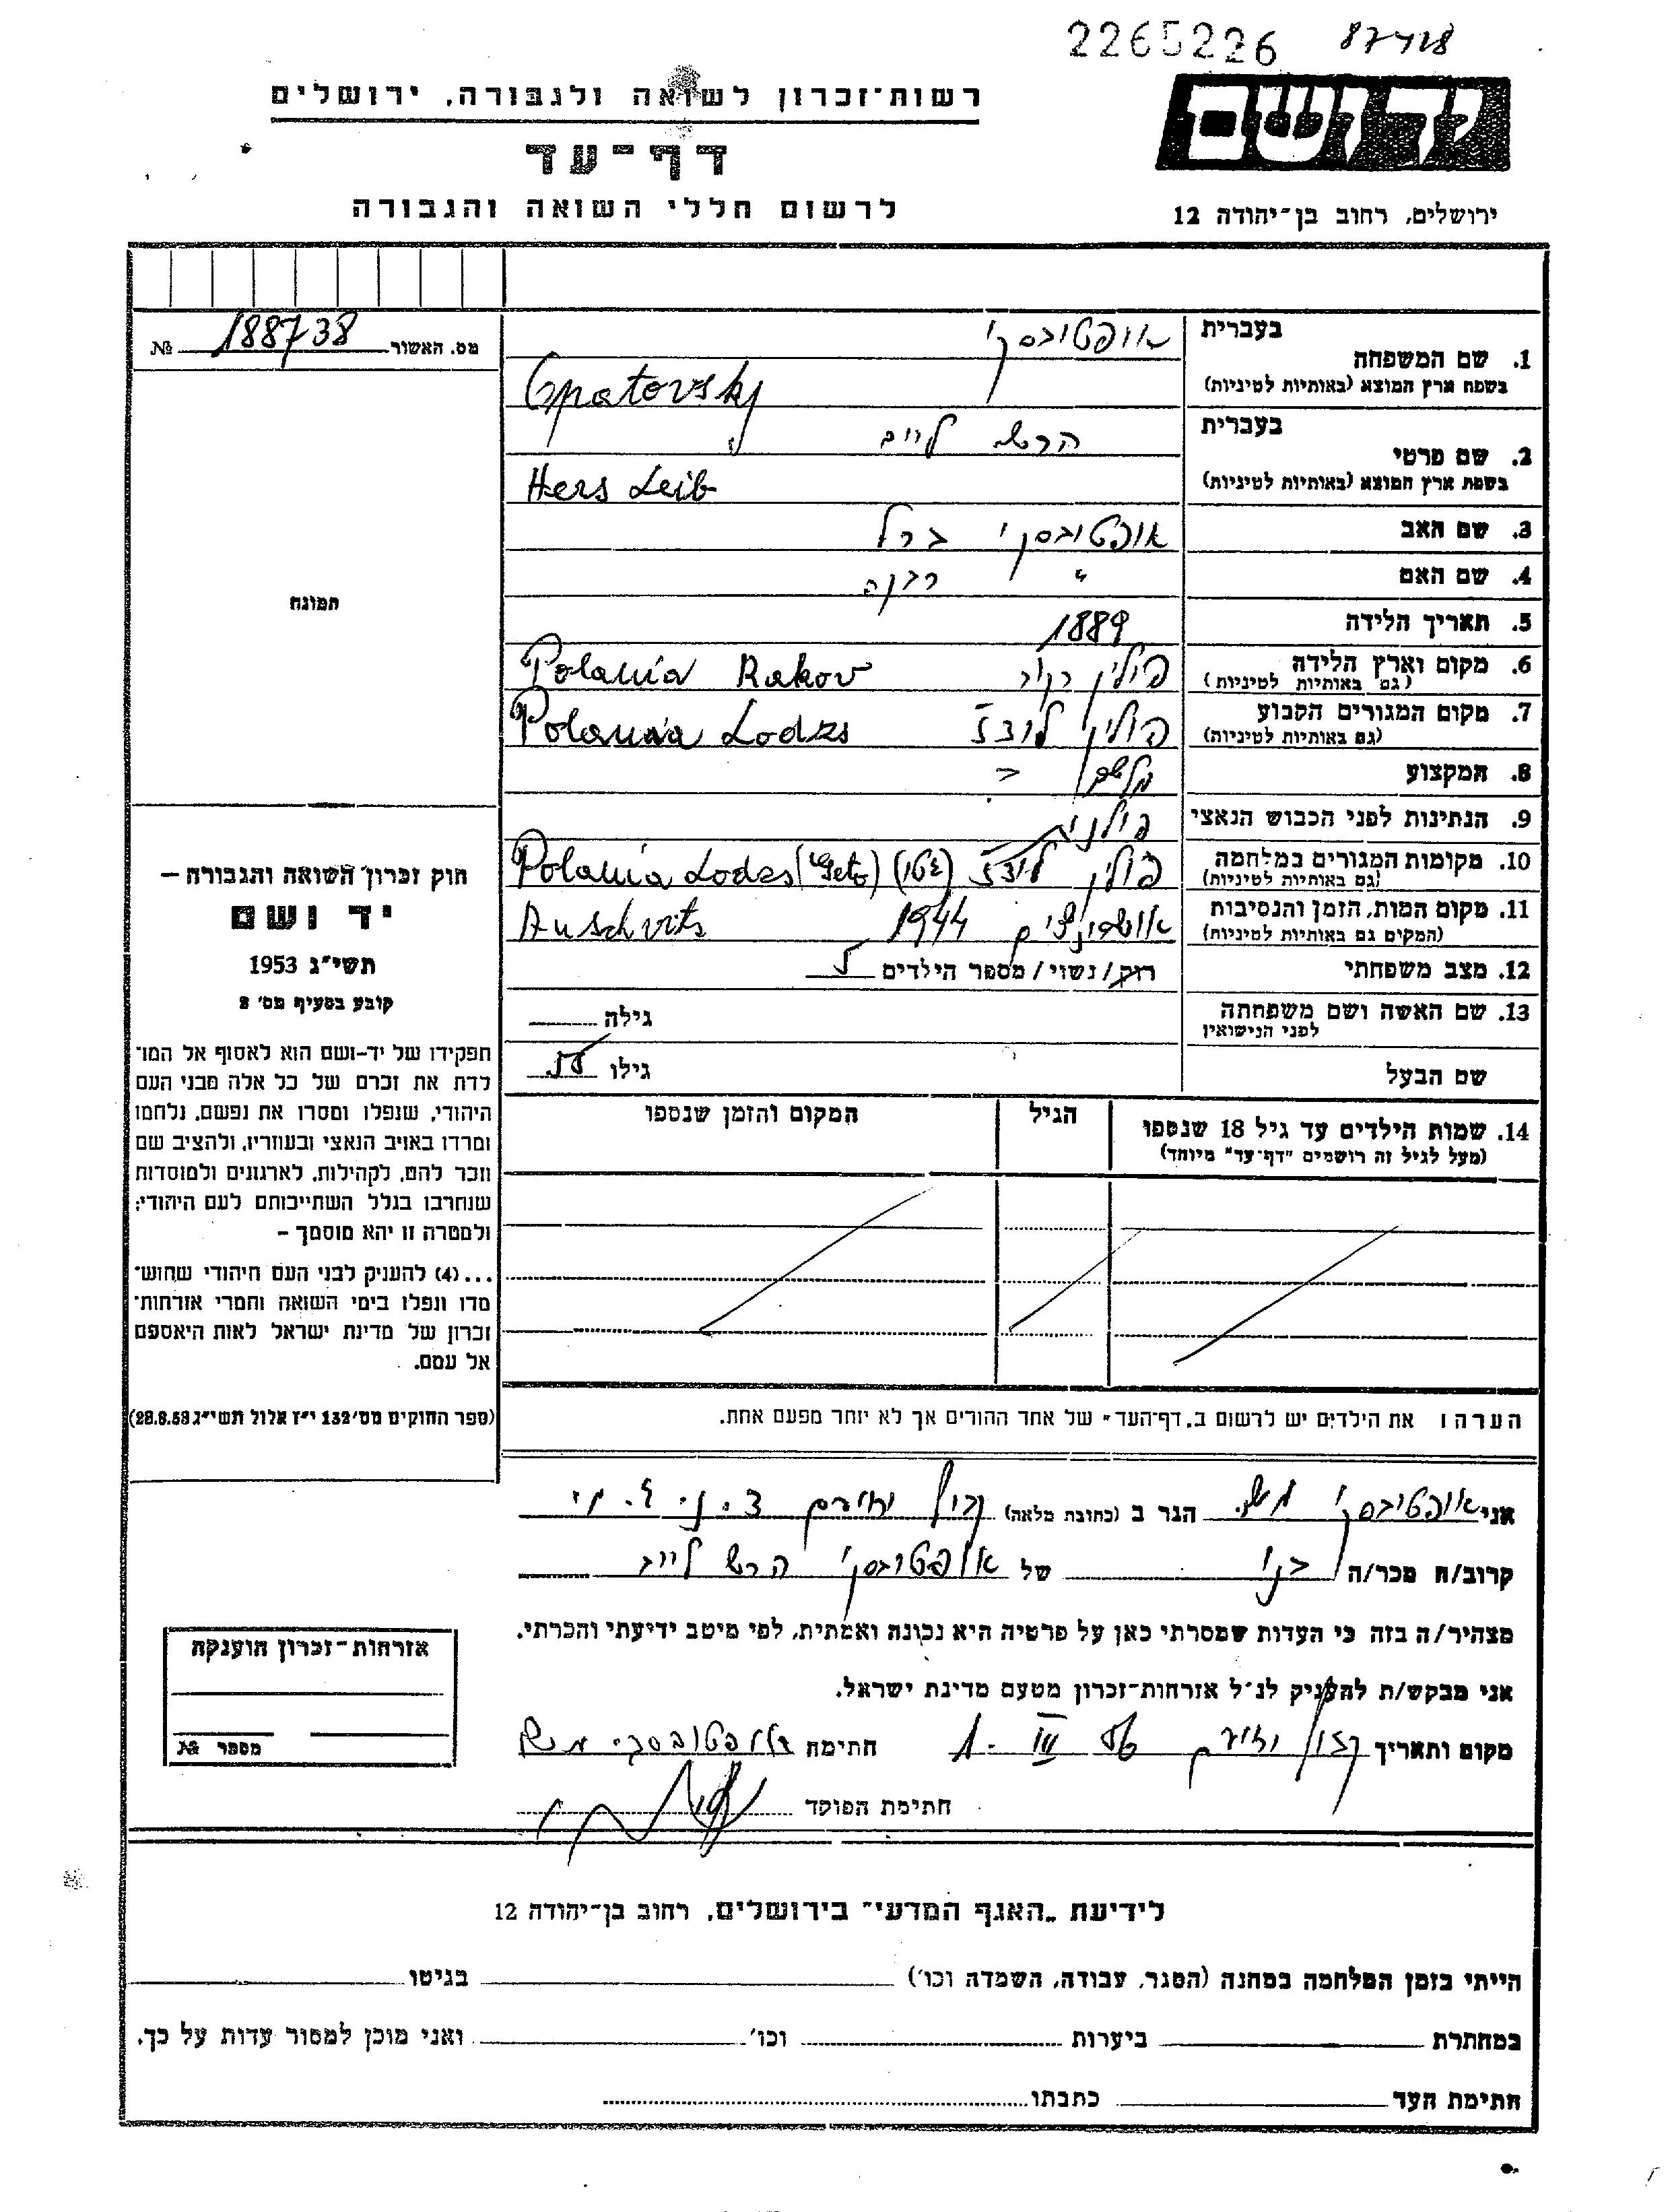 2265226 87418
יד ושם
רשות־זכרון לשואה ולגבורה, ירושלים
דף־עד
לרשום חללי השואה והגבורה
ירושלים, רחוב בן־יהודה 12
מס. האשור 188738 №
תמונה
1. שם המשפחה
בעברית אופטובסקי
בשפת ארץ המוצא (באותיות לטיניות) Opatovsky
2. שם פרטי
בעברית הרש לייב
בשפת ארץ המוצא (באותיות לטיניות) Hers Leib
3. שם האב אופטובסקי ברל
4. שם האם " רבקה
5. תאריך הלידה 1889
6. מקום וארץ הלידה
(גם באותיות לטיניות) פולין רקוב Polania Rakov
7. מקום המגורים הקבוע
(גם באותיות לטיניות) פולין לודז Polania Lodzs
8. המקצוע
9. הנתינות לפני הכבוש הנאצי פולני
10. מקומות המגורים במלחמה
(גם באותיות לטיניות) פולין לודז (גטו) Polania Lodzs (Geto)
11. מקום המות, הזמן והנסיבות
(המקום גם באותיות לטיניות) 1944 Auschvits
12. מצב משפחתי רוק/נשוי/מספר הילדים 5
13. שם האשה ושם משפחתה
לפני הנישואין גילה
שם הבעל גילו 55
14. שמות הילדים עד גיל 18 שנספו
(מעל לגיל זה רושמים "דף־עד" מיוחד)
הגיל
המקום והזמן שנספו
הערה: את הילדים יש לרשום ב„דף־העד" של אחד ההורים אך לא יותר מפעם אחת.
חוק זכרון השואה והגבורה –
יד ושם
תשי"ג 1953
קובע בסעיף מס' 2
תפקידו של יד-ושם הוא לאסוף אל המו־
לדת את זכרם של כל אלה מבני העם
היהודי, שנפלו ומסרו את נפשם, נלחמו
ומרדו באויב הנאצי ובעוזריו, ולהציב שם
וזכר להם, לקהילות, לארגונים ולמוסדות
שנחרבו בגלל השתייכותם לעם היהודי;
ולמטרה זו יהא מוסמך –
...(4) להעניק לבני העם היהודי שהוש־
מדו ונפלו בימי השואה והמרי אזרחות־
זכרון של מדינת ישראל לאות היאספם
אל עמם.
(ספר החוקים מס' 132 י"ז אלול תשי"ג 28.8.53)
אני אופטובסקי משה הגר ב (כתובת מלאה)
קרוב/ה מכר/ה בנו של אופטובסקי הרש לייב
מצהיר/ה בזה כי העדות שמסרתי כאן על פרטיה היא נכונה ואמתית, לפי מיטב ידיעתי והכרתי.
אני מבקש/ת להעניק לנ"ל אזרחות־זכרון מטעם מדינת ישראל.
מקום ותאריך 1. III 56 חתימה אופטובסקי משה
חתימת הפוקד
אזרחות־זכרון הוענקה
מספר №
לידיעת „האגף המדעי" בירושלים, רחוב בן־יהודה 12
הייתי בזמן המלחמה במחנה (הסגר, עבודה, השמדה וכו') בגיטו
במחתרת ביערות וכו' ואני מוכן למסור עדות על כך.
חתימת העד כתבתו